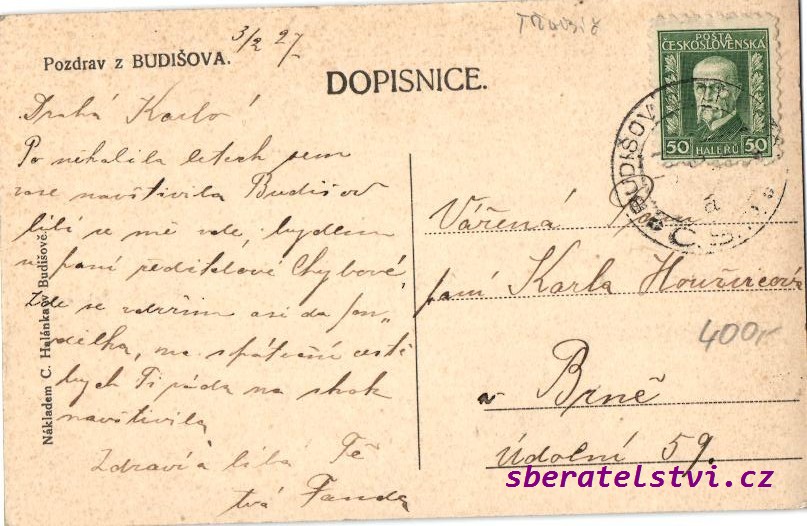 Třebíč
3/2 27
Pozdrav z BUDIŠOVA.
DOPISNICE.
POSTA
ČESKOSLOVENSKÁ
50 HALERŮ 50
BUDIŠOV
Č.S.
Drahá Karlo!
Po několika letech sem
zase navštívila Budišov
líbí se mě zde, bydlím
u paní ředitelové Chybové,
Zde se zdržím asi do pon„
dělka, na zpáteční cestě
bych Ti ráda na skok
navštívila
Zdraví a líbá Tě
tvá Fanda
Nákladem C. Halánka v Budišově.
Vážená
paní Karla
400,-
v Brně
Údolní 59.
sberatelstvi.cz